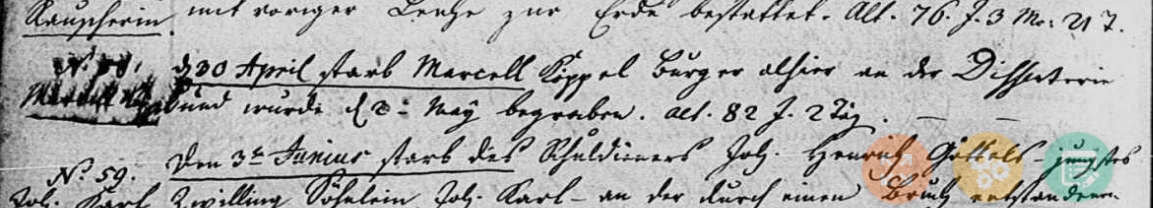 Rauscherin mit voriger Leiche zur Erde bestattet. Alt. 76. J. 3 Mo: 21 T.
N. 58. d 30 April starb Marcell Köppel Burger alhier an der Dissenterie
Marcell und wurde d 2 - May begraben. alt. 82 J. 2 Täg. — —
N. 59. Den 3t Junius starb des Schuldieners Joh. Henrich jüngstes
Joh. Karl Zwilling Söhnlein Joh. Karl - an der durch einen Bruch entstandenen